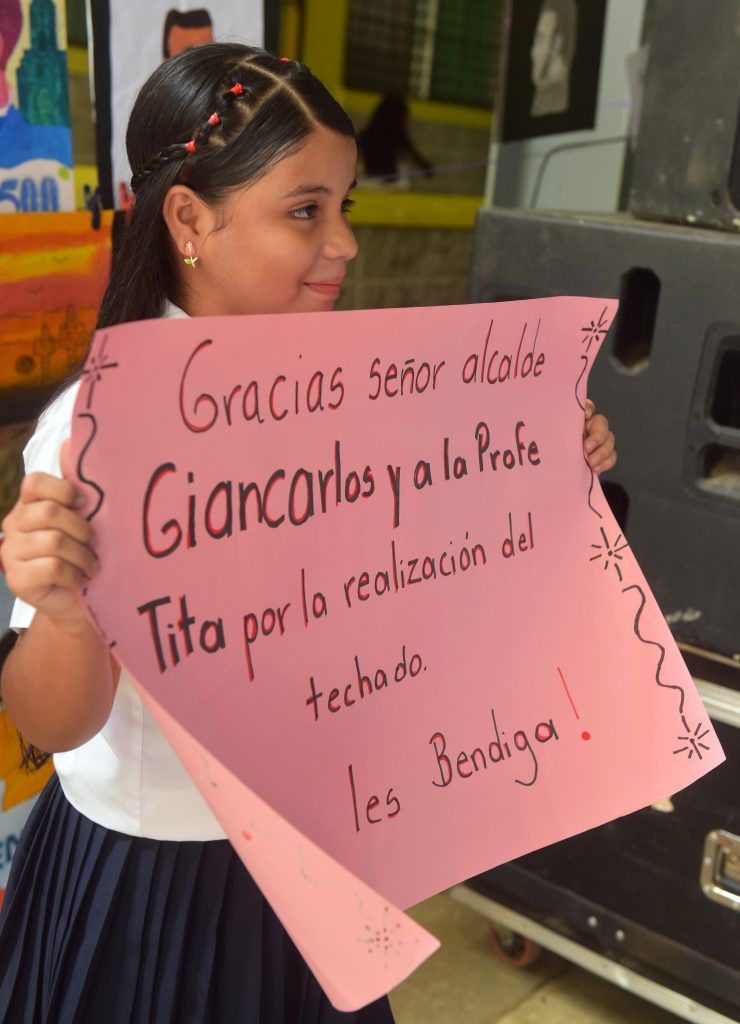 500
Gracias señor alcalde
Giancarlos y a la Profe
Tita por la realización del
techado.
les Bendiga!